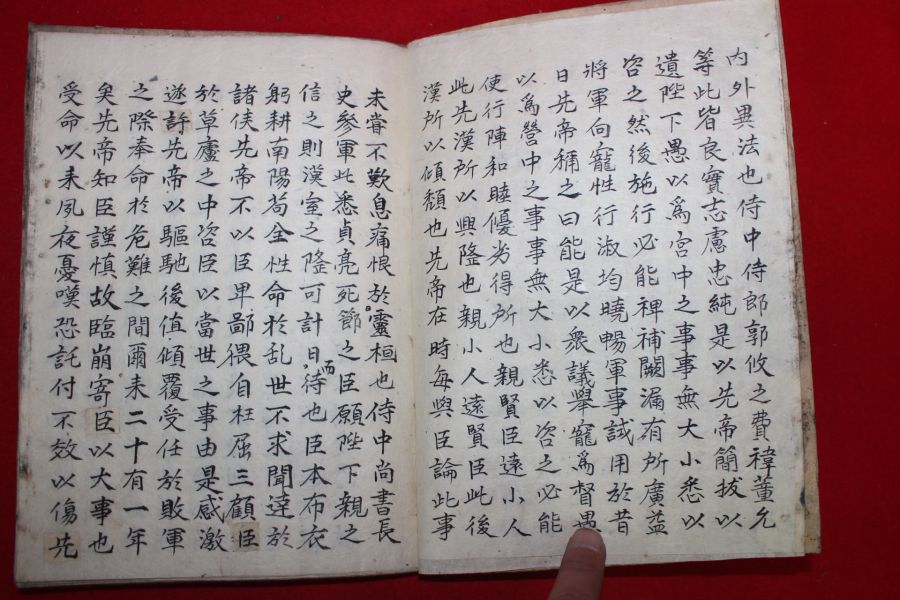 内外異法也侍中侍郎郭攸之費禕董允
等此皆良實志慮忠純是以先帝簡拔以
遺陛下愚以爲宮中之事事無大小悉以
咨之然後施行必能裨補闕漏有所廣益
將軍向寵性行淑均曉暢軍事試用於昔
日先帝稱之曰能是以衆議擧寵爲督愚
以爲營中之事事無大小悉以咨之必能
使行陣和睦優劣得所也親賢臣遠小人
此先漢所以興隆也親小人遠賢臣此後
漢所以傾頹也先帝在時每與臣論此事
未甞不歎息痛恨於靈桓也侍中尚書長
史參軍此悉貞亮死節之臣願陛下親之
信之則漢室之隆可計日而待也臣本布衣
躬耕南陽苟全性命於乱世不求聞達於
諸侯先帝不以臣卑鄙猥自枉屈三顧臣
於草廬之中咨臣以當世之事由是感激
遂許先帝以驅馳後值傾覆受任於敗軍
之際奉命於危難之間爾来二十有一年
矣先帝知臣謹慎故臨崩寄臣以大事也
受命以来夙夜憂嘆恐託付不效以傷先